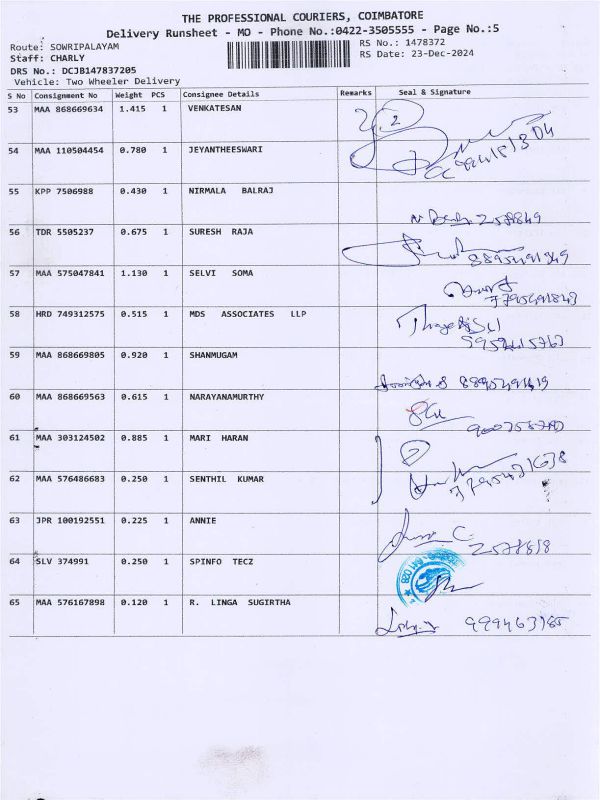 THE PROFESSIONAL COURIERS, COIMBATORE
Delivery Runsheet - MO - Phone No.:0422-3505555 - Page No.:5
Route: SOWRIPALAYAM
RS No.: 1478372
Staff: CHARLY
RS Date: 23-Dec-2024
DRS No.: DCJB147837205
Vehicle: Two Wheeler Delivery
S No Consignment No Weight PCS Consignee Details Remarks Seal & Signature
53 MAA 868669634 1.415 1 VENKATESAN
2
54 MAA 110504454 0.780 1 JEYANTHEESWARI
55 KPP 7506988 0.430 1 NIRMALA BALRAJ
2578849
56 TDR 5505237 0.675 1 SURESH RAJA
57 MAA 575047841 1.130 1 SELVI SOMA
58 HRD 749312575 0.515 1 MDS ASSOCIATES LLP
59 MAA 868669805 0.920 1 SHANMUGAM
60 MAA 868669563 0.615 1 NARAYANAMURTHY
61 MAA 303124502 0.885 1 MARI HARAN
2
62 MAA 576486683 0.250 1 SENTHIL KUMAR
63 JPR 100192551 0.225 1 ANNIE
64 SLV 374991 0.250 1 SPINFO TECZ
65 MAA 576167898 0.120 1 R. LINGA SUGIRTHA